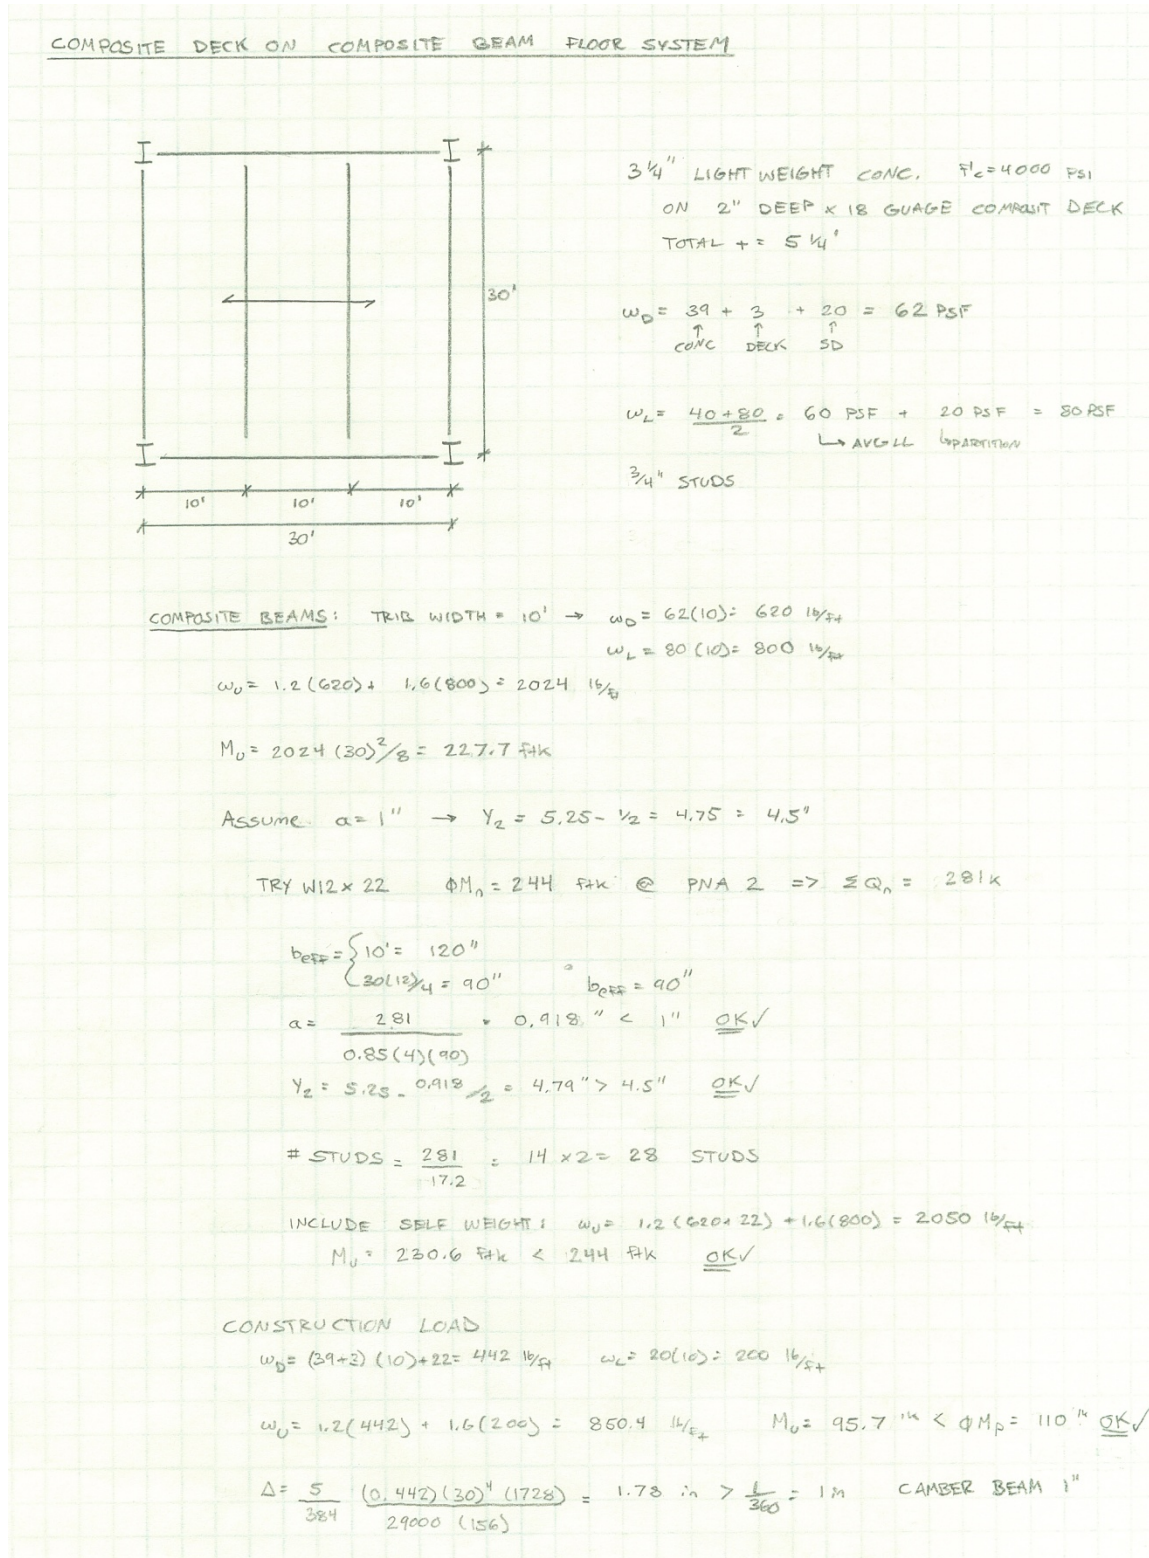 COMPOSITE DECK ON COMPOSITE BEAM FLOOR SYSTEM
3 1/4" LIGHT WEIGHT CONC. f'c=4000 PSI
ON 2" DEEP x 18 GUAGE COMPOSIT DECK
TOTAL t = 5 1/4"
30'
ω_D = 39 + 3 + 20 = 62 PSF
↑ ↑ ↑
CONC DECK SD
ω_L = (40+80)/2 = 60 PSF + 20 PSF = 80 PSF
↳ AVG LL ↳ PARTITION
3/4" STUDS
10' 10' 10'
30'
COMPOSITE BEAMS: TRIB WIDTH = 10' → ω_D = 62(10) = 620 lb/ft
ω_L = 80(10) = 800 lb/ft
ω_U = 1.2(620) + 1.6(800) = 2024 lb/ft
M_U = 2024(30)²/8 = 227.7 ftk
Assume a = 1" → Y₂ = 5.25 - 1/2 = 4.75 = 4.5"
TRY W12 x 22 ΦM_n = 244 ftk @ PNA 2 => ΣQ_n = 281k
b_eff = { 10' = 120"
30(12)/4 = 90" b_eff = 90"
a = 281/(0.85(4)(90)) = 0.918" < 1" OK✓
Y₂ = 5.25 - 0.918/2 = 4.79" > 4.5" OK✓
# STUDS = 281/17.2 = 14 x 2 = 28 STUDS
INCLUDE SELF WEIGHT: ω_U = 1.2(620+22) + 1.6(800) = 2050 lb/ft
M_U = 230.6 ftk < 244 ftk OK✓
CONSTRUCTION LOAD
ω_D = (39+3)(10)+22 = 442 lb/ft ω_L = 20(10) = 200 lb/ft
ω_U = 1.2(442) + 1.6(200) = 850.4 lb/ft M_U = 95.7 'k < ΦM_p = 110 'k OK✓
Δ = 5/384 (0.442)(30)⁴(1728)/29000(156) = 1.78 in > L/360 = 1 in CAMBER BEAM 1"